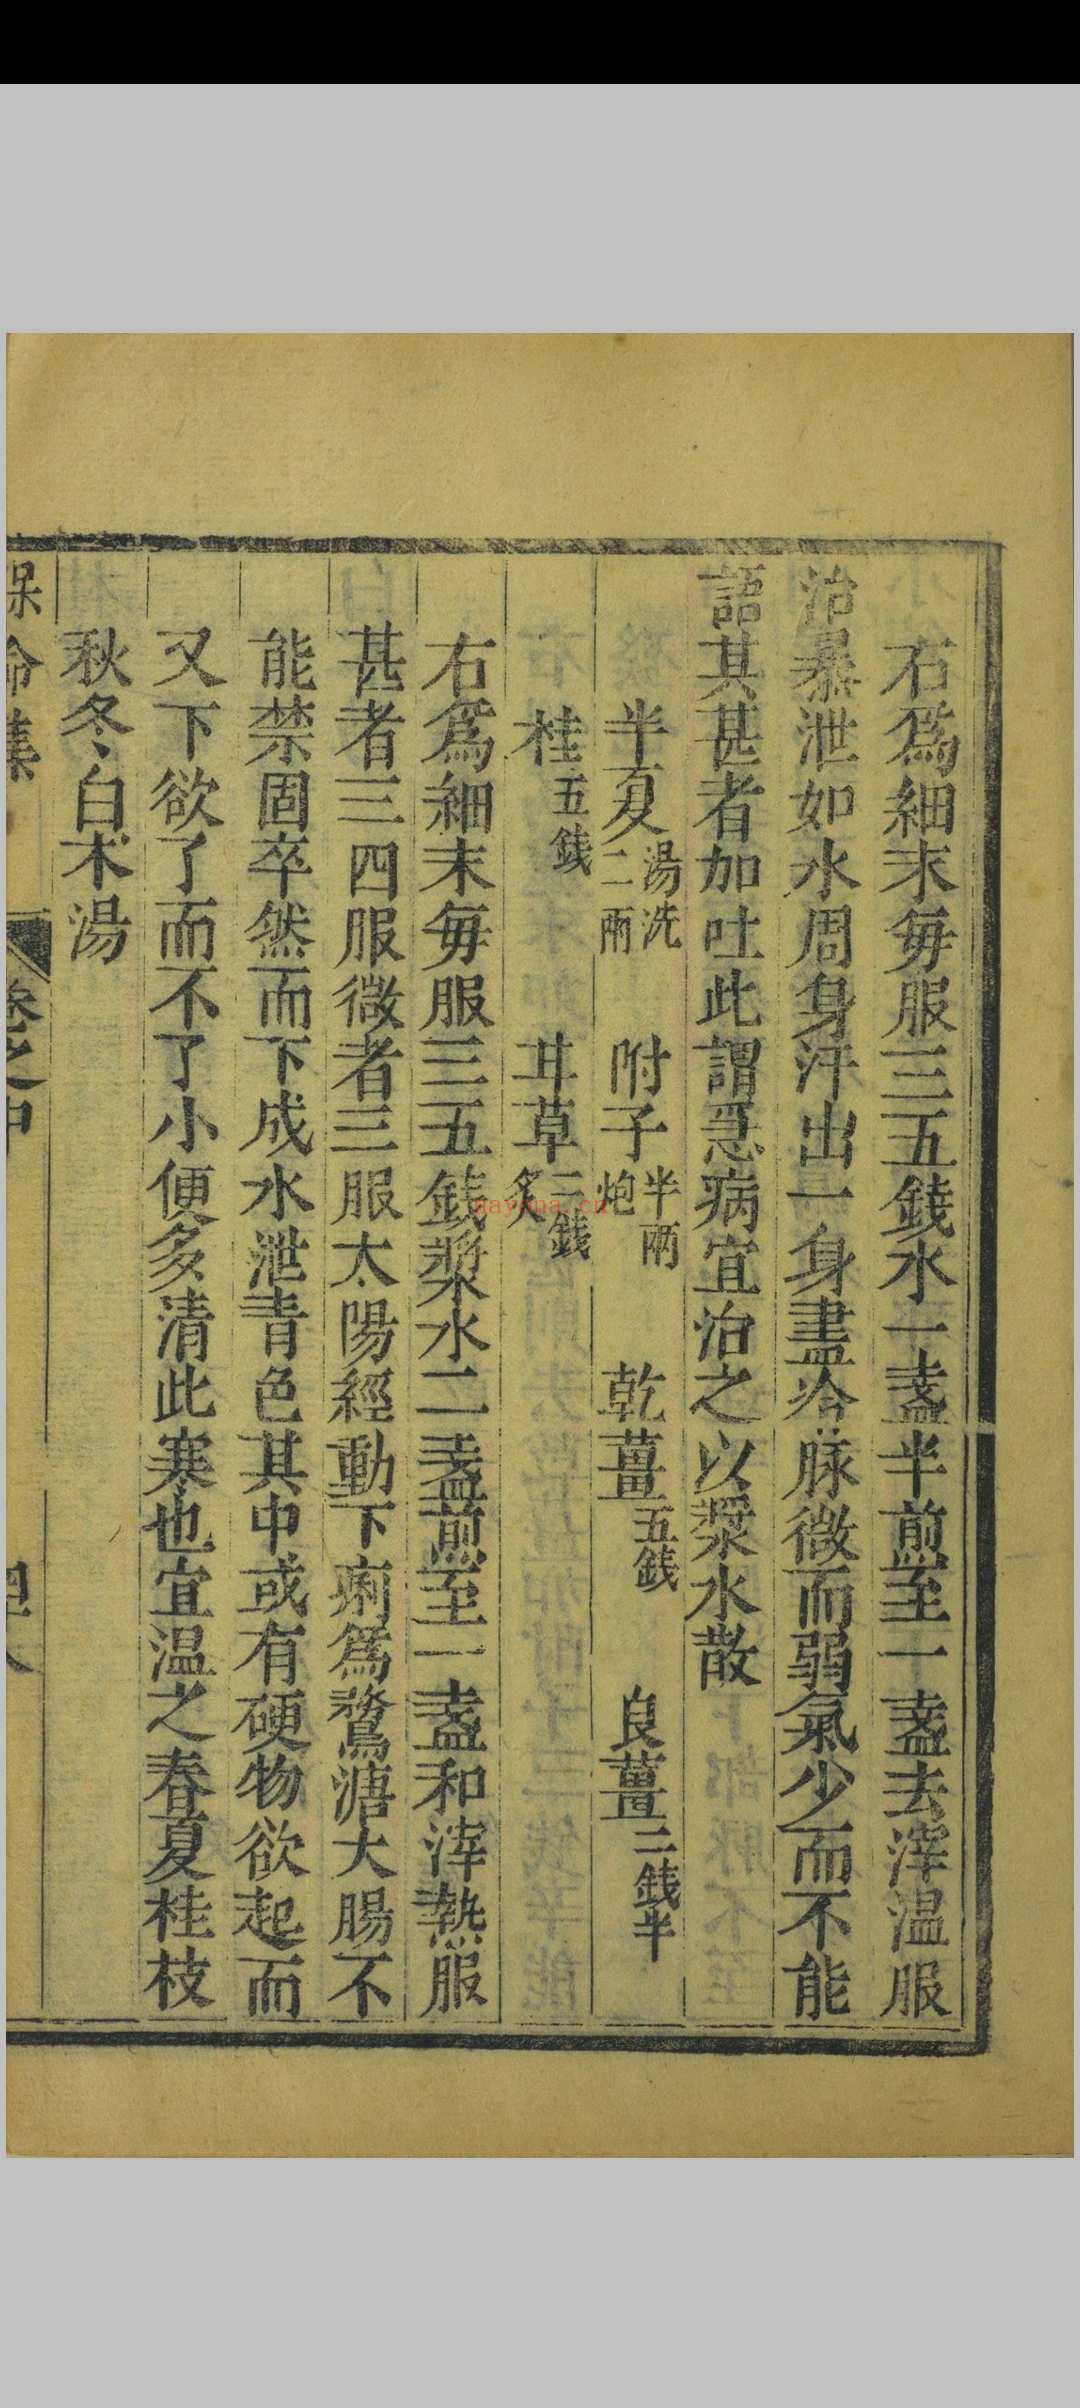 右爲細末每服三五錢水一盞半煎至一盞去滓温服
治暴泄如水周身汗出一身盡冷脉微而弱氣少而不能
語其甚者加吐此謂急病宜治之以漿水散
半夏二兩湯洗 附子半兩炮 乾薑五錢 良薑二錢半
桂五錢 甘草二錢炙
右爲細末每服三五錢漿水二盞煎至一盞和滓熱服
甚者三四服微者三服太陽經動下痢爲鶩溏大腸不
能禁固卒然而下成水泄青色其中或有硬物欲起而
又下欲了而不了小便多清此寒也宜温之春夏桂枝
秋冬白术湯
保命集 卷之中
nayona.cn